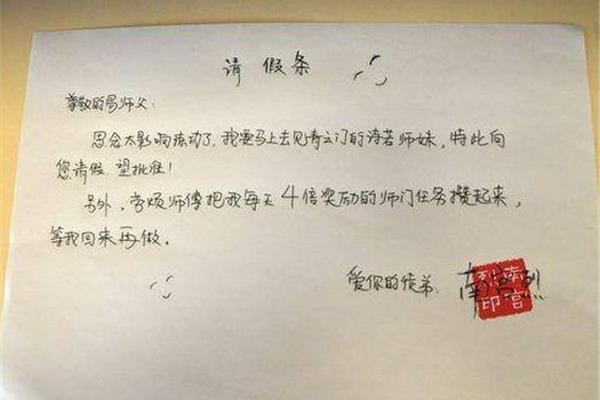 请假条
尊敬的易师父:
思念太影响练功了,我要马上去见青云门的诗若师妹,特此向
您请假,望批准!
另外,劳烦师傅把我每天4倍奖励的师门任务攒起来,
等我回来再做。
爱你的徒弟:南宫烈
南宫
烈印